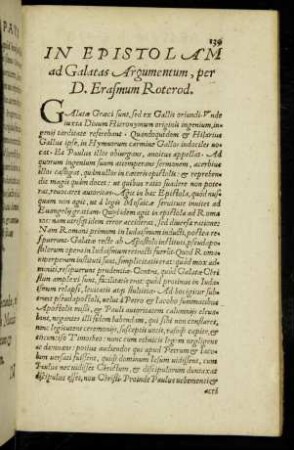 139
IN EPISTOLAM
ad Galatas Argumentum, per
D. Erasmum Roterod.
GAlatæ Græci sunt, sed ex Gallis oriundi. Vnde
iuxta Diuum Hieronymum originis ingenium, in-
genij tarditate referebant. Quandoquidem & Hilarius
Gallus ipse, in Hymnorum carmine Gallos indociles vo-
cat. Ita Paulus illos obiurgans, insensatos appellat. Ad
quorum ingenium suum attemperans sermonem, acerbius
illos castigat, quàm vllos in cæteris epistolis: & reprehen-
dit magis quàm docet: ut quibus ratio suadere non pote-
rat, reuocaret autoritas. Agit in hac Epistola, quod nus-
quam non agit, ut à legis Mosaicæ seruitute inuitet ad
Euangelij gratiam. Quod idem agit in epistola ad Roma
nos: nam utrisque idem error acciderat, sed diuersa ratione.
Nam Romani primum in Iudaismum inducti, postea re-
sipuerunt. Galatæ recte ab Apostolo instituti, pseudapo-
stolorum opera in Iudaismum retracti fuerant. Quod Roma-
ni perperam instituti sunt, simplicitatis erat: quod mox ad-
moniti, resipuerunt prudentiæ. Contra, quod Galatæ Chri
stum amplexi sunt, facilitatis erat: quod protinus in Iu-
daismum relapsi,
erant pseudapostoli, uelut à Petro & Iacobo summatibus
Apostolis missi, & Pauli autoritatem calumnijs ele-
bant, negantes illi fidem habendam, qui sibi non constaret,
nec legitimam ceremoniam, suscepit uotum, rasus capite, &
circumcisit Timotheum: nunc eum
ac damnare: potius audiendos qui apud Petrum & Iaco-
bum uersati fuissent, quod dominum Iesum uidissent, cum
Paulus nec uidisset Christum, & discipulorum duntaxat
discipulus esset, non Christi. Proinde Paulus uehementi &
acri